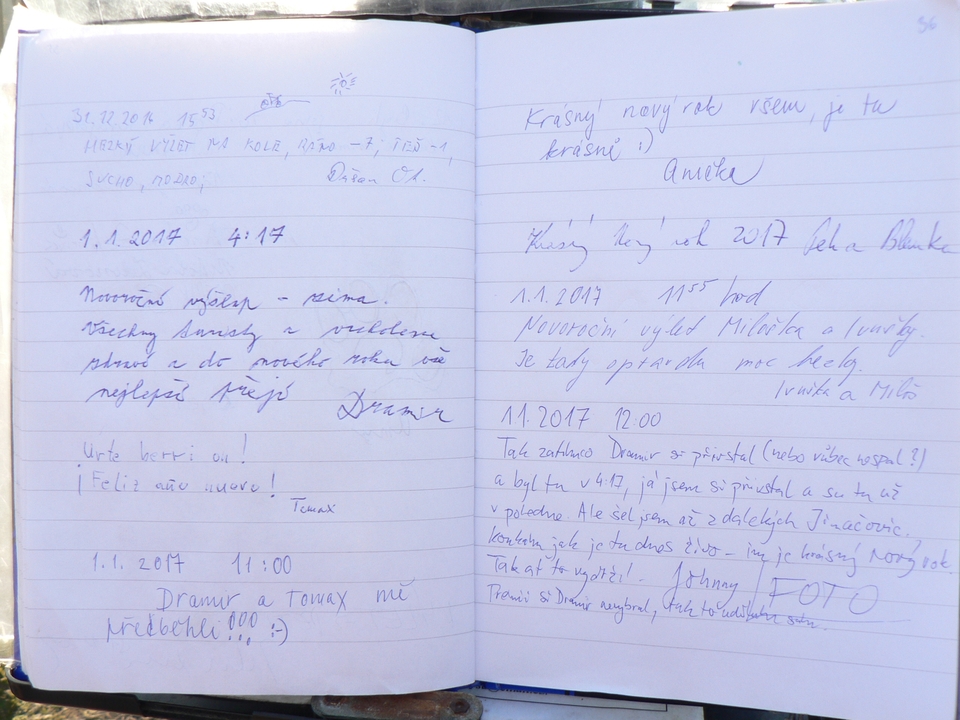 31.12.2016 15⁵³
HEZKÝ VÝLET NA KOLE, RÁNO -7; TEĎ -1,
SUCHO, MODRO;
Dušan Ol.
1.1.2017 4:17
Novoroční výšlap - zima.
Všechny a
zdraví a do nového roku vše
nejlepší přeje
Dramir
Urte berri on!
¡Feliz año nuevo!
Tomax
1.1.2017 11:00
Dramir a Tomax mě
předběhli!!! :-)
36
Krásný nový rok všem, je tu
krásně :)
Anička
Krásný Nový rok 2017 a Blanka
1.1.2017 11⁵⁵ hod
Novoroční výlet Miloška a Ivušky.
Je tady opravdu moc hezky.
Ivuška a Miloš
1.1.2017 12:00
Tak zatímco Dramir si přivstal (nebo vůbec nespal?)
a byl tu v 4:17, já jsem si přivstal a su tu až
v poledne. Ale šel jsem až z dalekých Jinačovic.,
koukám jak je tu dnes živo - im je krásný Nový rok.
Tak ať to vydrží! Johnny FOTO
Prémii si Dramir nevybral, tak to udělám